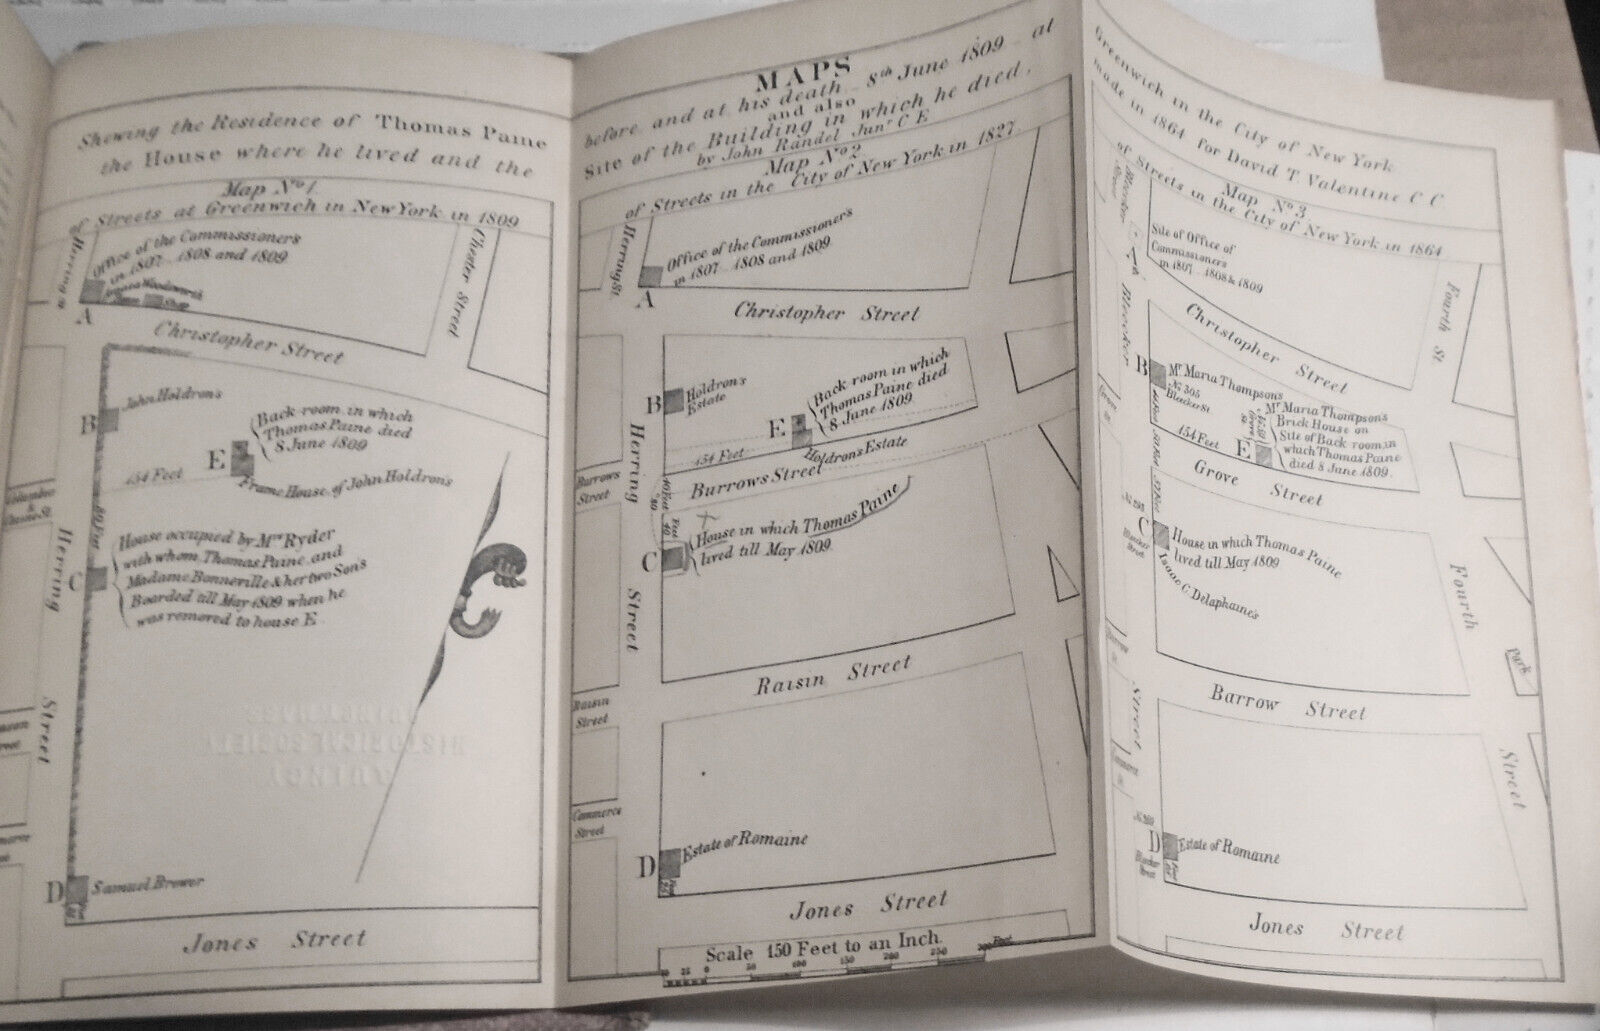 MAPS
Shewing the Residence of Thomas Paine before and at his death 8th June 1809 at Greenwich in the City of New York
the House where he lived and the Site of the Building in which he died, made in 1864 for David T. Valentine C C
and also
by John Randel Junr C E
Map No 1.
of Streets at Greenwich in New York in 1809
Herring
Office of the Commissioner's
in 1807 - 1808 and 1809
Shop
A
Chester Street
Christopher Street
John Holdron's
B
Back-room in which
Thomas Paine died
8 June 1809
E
154 Feet
Frame House of John Holdron's
80 Feet
House occupied by Mrs Ryder
with whom Thomas Paine and
Madame Bonneville & her two Son's
Boarded till May 1809 when he
was removed to house E
C
Herring
Street
QUINCY
HISTORICAL SOCIETY
D
Samuel Brower
Jones Street
Map No 2
of Streets in the City of New York in 1827
Herring St
Office of the Commissioner's
in 1807 - 1808 and 1809
A
Christopher Street
B
Holdron's
Estate
Back-room in which
Thomas Paine died
8 June 1809.
E
154 Feet
Holdron's Estate
Burrows
Street
Burrows Street
Herring
40 Feet
House in which Thomas Paine
lived till May 1809
C
Street
Raisin Street
Raisin
Street
Commerce
Street
D
Estate of Romaine
Jones Street
Scale 150 Feet to an Inch.
25 0 50 100 150 200 250 300 Feet
Map No 3
of Streets in the City of New York in 1864
Bleecker
Street
Site of Office of
Commissioners
in 1807 - 1808 & 1809
Fourth St
Christopher Street
Bleecker
B
Mr Maria Thompson's
No 305
Bleecker St
Mr Maria Thompson's
Brick House on
Site of Back-room in
which Thomas Paine
died 8 June 1809.
E
154 Feet
Grove Street
No 293
Bleecker
Street
C
House in which Thomas Paine
lived till May 1809
Isaac C. Delaplaine's
Fourth
Park
Barrow Street
Street
Street
D
Estate of Romaine
Bleecker
Street
Jones Street